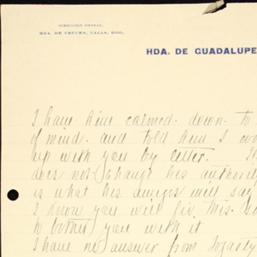 DIRECCION POSTAL,
HDA. DE GUADALUPE
I have him calmed down to
of mind and told him I
up with you by letter.
does not change his authority
is what his amigos will say
I know you will
to bother you with it
I have no answer from